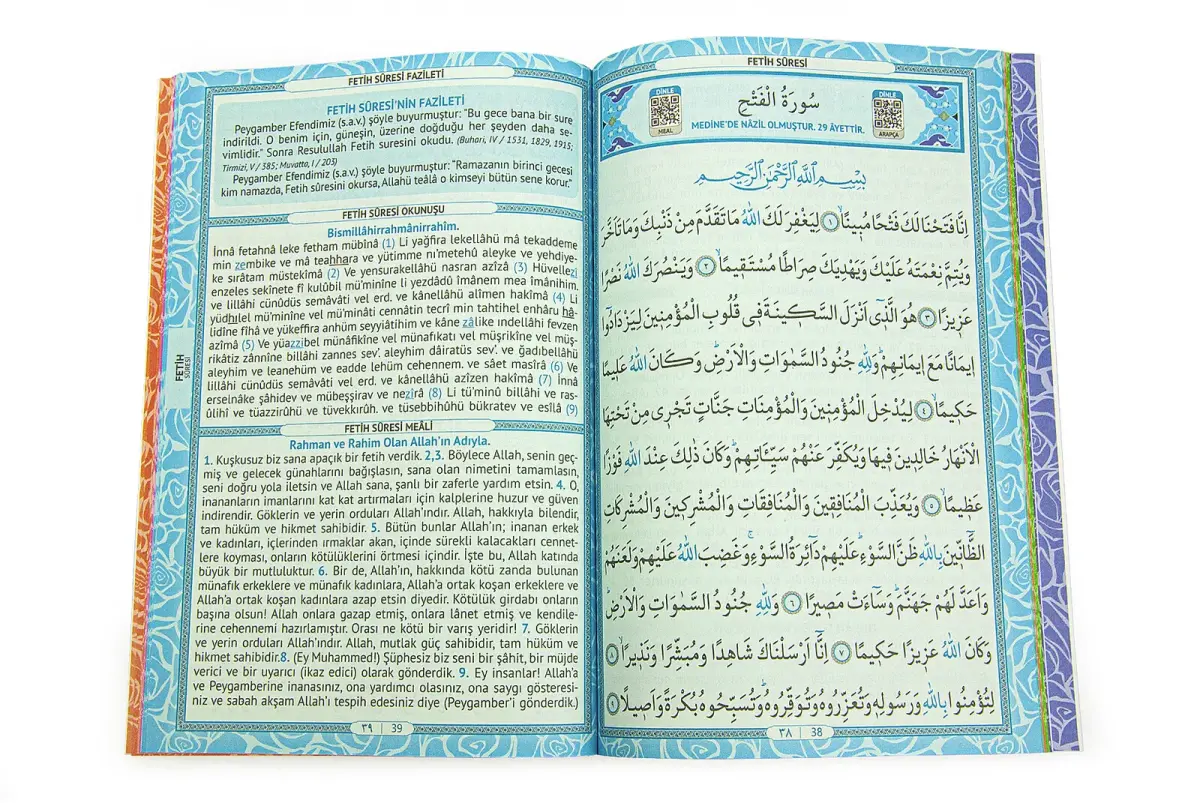 FETİH SÛRESİ
DİNLE
MEAL
سُورَةُ الْفَتْحِ
MEDİNE'DE NÂZİL OLMUŞTUR. 29 ÂYETTİR.
DİNLE
ARAPÇA
بِسْمِ اللّٰهِ الرَّحْمٰنِ الرَّحِيمِ
اِنَّا فَتَحْنَا لَكَ فَتْحًا مُبٖينًاۙ ﴿١﴾ لِيَغْفِرَ لَكَ اللّٰهُ مَا تَقَدَّمَ مِنْ ذَنْبِكَ وَمَا تَاَخَّرَ
وَيُتِمَّ نِعْمَتَهُ عَلَيْكَ وَيَهْدِيَكَ صِرَاطًا مُسْتَقٖيمًاۙ ﴿٢﴾ وَيَنْصُرَكَ اللّٰهُ نَصْرًا
عَزٖيزًا ﴿٣﴾ هُوَ الَّذٖٓى اَنْزَلَ السَّكٖينَةَ فٖى قُلُوبِ الْمُؤْمِنٖينَ لِيَزْدَادُٓوا
اٖيمَانًا مَعَ اٖيمَانِهِمْؕ وَلِلّٰهِ جُنُودُ السَّمٰوَاتِ وَالْاَرْضِؕ وَكَانَ اللّٰهُ عَلٖيمًا
حَكٖيمًاۙ ﴿٤﴾ لِيُدْخِلَ الْمُؤْمِنٖينَ وَالْمُؤْمِنَاتِ جَنَّاتٍ تَجْرٖى مِنْ تَحْتِهَا
الْاَنْهَارُ خَالِدٖينَ فٖيهَا وَيُكَفِّرَ عَنْهُمْ سَيِّـَٔاتِهِمْؕ وَكَانَ ذٰلِكَ عِنْدَ اللّٰهِ فَوْزًا
عَظٖيمًاۙ ﴿٥﴾ وَيُعَذِّبَ الْمُنَافِقٖينَ وَالْمُنَافِقَاتِ وَالْمُشْرِكٖينَ وَالْمُشْرِكَاتِ
الظَّٓانّٖينَ بِاللّٰهِ ظَنَّ السَّوْءِؕ عَلَيْهِمْ دَٓائِرَةُ السَّوْءِۚ وَغَضِبَ اللّٰهُ عَلَيْهِمْ وَلَعَنَهُمْ
وَاَعَدَّ لَهُمْ جَهَنَّمَؕ وَسَٓاءَتْ مَصٖيرًا ﴿٦﴾ وَلِلّٰهِ جُنُودُ السَّمٰوَاتِ وَالْاَرْضِؕ
وَكَانَ اللّٰهُ عَزٖيزًا حَكٖيمًا ﴿٧﴾ اِنَّٓا اَرْسَلْنَاكَ شَاهِدًا وَمُبَشِّرًا وَنَذٖيرًاۙ ﴿٨﴾
لِتُؤْمِنُوا بِاللّٰهِ وَرَسُولِهٖ وَتُعَزِّرُوهُ وَتُوَقِّرُوهُؕ وَتُسَبِّحُوهُ بُكْرَةً وَاَصٖيلًا ﴿٩﴾
٣٨ | 38
FETİH SÛRESİ FAZİLETİ
FETİH SÛRESİ'NİN FAZİLETİ
Peygamber Efendimiz (s.a.v.) şöyle buyurmuştur: "Bu gece bana bir sure
indirildi. O benim için, güneşin, üzerine doğduğu her şeyden daha se-
vimlidir." Sonra Resulullah Fetih suresini okudu. (Buhari, IV / 1531, 1829, 1915;
Tirmizi, V / 385; Muvatta, I / 203)
Peygamber Efendimiz (s.a.v.) şöyle buyurmuştur: "Ramazanın birinci gecesi
kim namazda, Fetih sûresini okursa, Allahü teâlâ o kimseyi bütün sene korur."
FETİH SÛRESİ OKUNUŞU
Bismillâhirrahmânirrahîm.
İnnâ fetahnâ leke fetham mübînâ (1) Li yağfira lekellâhü mâ tekaddeme
min zembike ve mâ teahhara ve yütimme nı'metehû aleyke ve yehdiye-
ke sırâtam müstekîmâ (2) Ve yensurakellâhü nasran azîzâ (3) Hüvellezî
enzeles sekînete fî kulûbil mü'minîne li yezdâdû îmânem mea îmânihim.
ve lillâhi cünûdüs semâvâti vel erd. ve kânellâhü alîmen hakîmâ (4) Li
yüdhılel mü'minîne vel mü'minâti cennâtin tecrî min tahtihel enhâru hâ-
lidîne fîhâ ve yükeffira anhüm seyyiâtihim ve kâne zâlike ındellâhi fevzen
azîmâ (5) Ve yüazzibel münâfikîne vel münafikatı vel müşrikîne vel müş-
rikâtiz zânnîne billâhi zannes sev'. aleyhim dâiratüs sev'. ve ğadıbellâhü
aleyhim ve leanehüm ve eadde lehüm cehennem. ve sâet masîrâ (6) Ve
lillâhi cünûdüs semâvâti vel erd. ve kânellâhü azîzen hakîmâ (7) İnnâ
erselnâke şâhidev ve mübeşşirav ve nezîrâ (8) Li tü'minû billâhi ve ras-
ûlihî ve tüazzirûhü ve tüvekkırûh. ve tüsebbihûhü bükratev ve esîlâ (9)
FETİH
SÛRESİ
FETİH SÛRESİ MEÂLİ
Rahman ve Rahim Olan Allah'ın Adıyla.
1. Kuşkusuz biz sana apaçık bir fetih verdik. 2,3. Böylece Allah, senin geç-
miş ve gelecek günahlarını bağışlasın, sana olan nimetini tamamlasın,
seni doğru yola iletsin ve Allah sana, şanlı bir zaferle yardım etsin. 4. O,
inananların imanlarını kat kat artırmaları için kalplerine huzur ve güven
indirendir. Göklerin ve yerin orduları Allah'ındır. Allah, hakkıyla bilendir,
tam hüküm ve hikmet sahibidir. 5. Bütün bunlar Allah'ın; inanan erkek
ve kadınları, içlerinden ırmaklar akan, içinde sürekli kalacakları cennet-
lere koyması, onların kötülüklerini örtmesi içindir. İşte bu, Allah katında
büyük bir mutluluktur. 6. Bir de, Allah'ın, hakkında kötü zanda bulunan
münafık erkeklere ve münafık kadınlara, Allah'a ortak koşan erkeklere ve
Allah'a ortak koşan kadınlara azap etsin diyedir. Kötülük girdabı onların
başına olsun! Allah onlara gazap etmiş, onlara lânet etmiş ve kendile-
rine cehennemi hazırlamıştır. Orası ne kötü bir varış yeridir! 7. Göklerin
ve yerin orduları Allah'ındır. Allah, mutlak güç sahibidir, tam hüküm ve
hikmet sahibidir.8. (Ey Muhammed!) Şüphesiz biz seni bir şâhit, bir müjde
verici ve bir uyarıcı (ikaz edici) olarak gönderdik. 9. Ey insanlar! Allah'a
ve Peygamberine inanasınız, ona yardımcı olasınız, ona saygı gösteresi-
niz ve sabah akşam Allah'ı tespih edesiniz diye (Peygamber'i gönderdik.)
٣٩ | 39